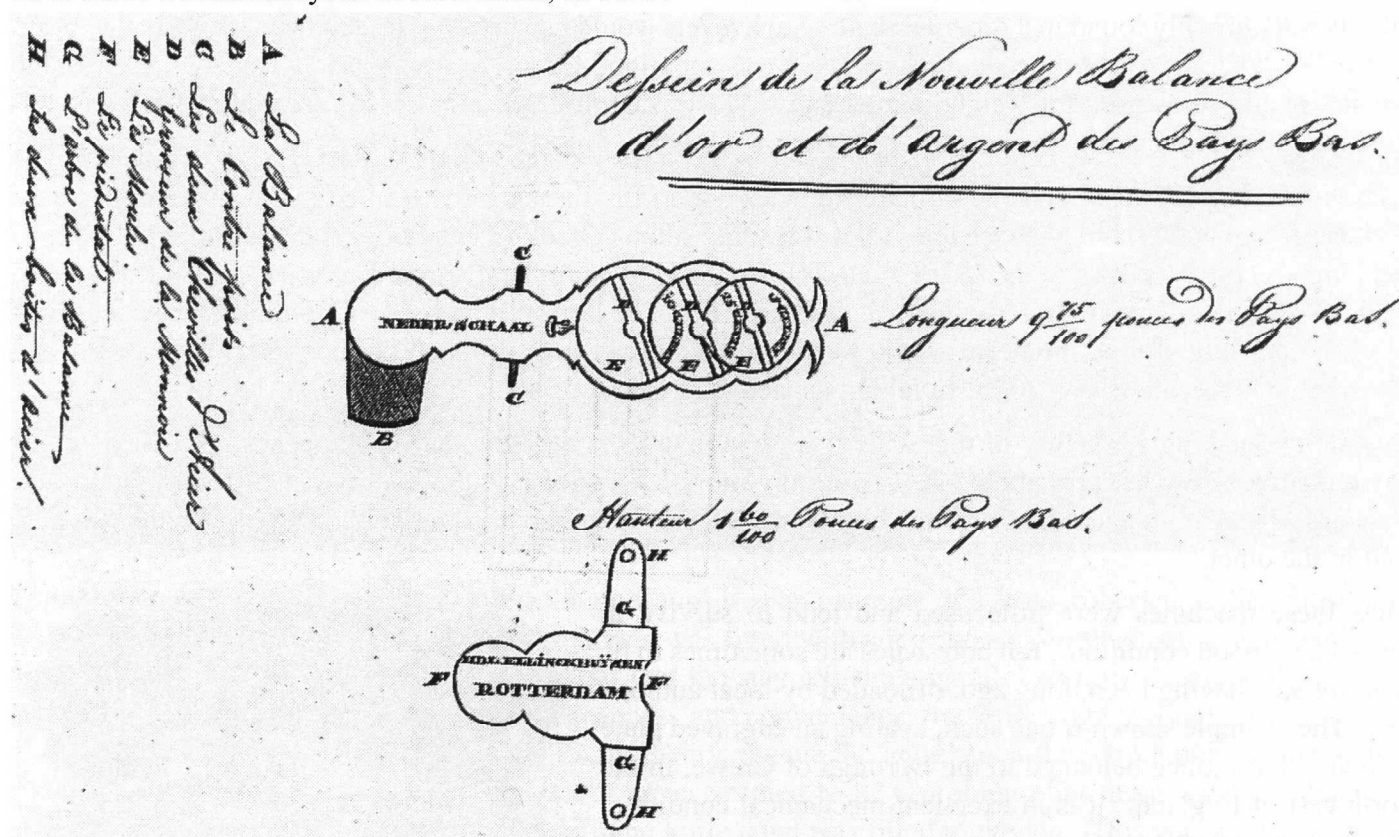 Dessein de la Nouvelle Balance
d'or et d'argent des Pays Bas.
A La Balance
B Le Contre poids
C Les deux Chevilles d'Acier
D Grosseur de la Monnoie
E Les Moules
F Le piédestal
G L'arbre de la Balance
H Les deux boites d'acier.
C
A NEDER SCHAAL A Longueur 9 75/100 pouces des Pays Bas.
E E E
C
B
Hauteur 1 60/100 Pouces des Pays Bas.
H
G
F ROTTERDAM F
G
H